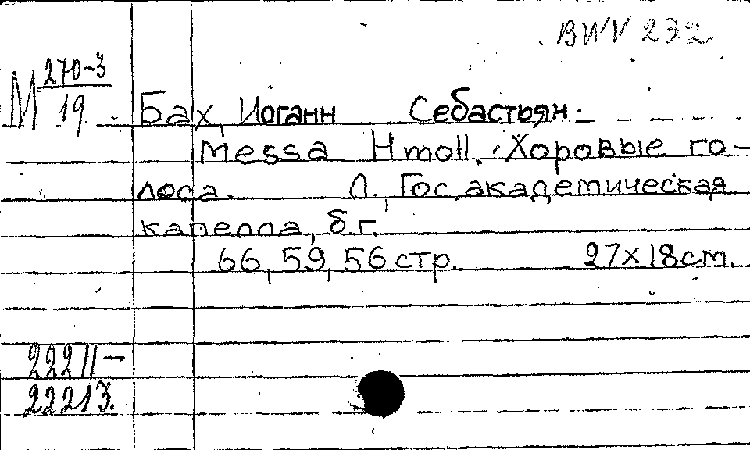 BWV 232
М 270-3
19
Бах, Иоганн Себастьян.
Messa H moll. Хоровые го-
лоса. Л., Гос. академическая
капелла, б.г.
66, 59, 56 стр. 27х18см.
22211-
22213.